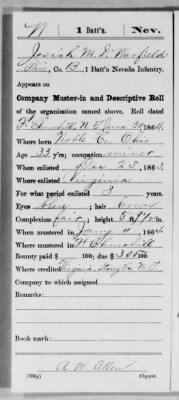 W 1 Batt's. Nev.
Josiah M. D. Winfield
Co. B, 1 Batt'n Nevada Infantry.
Appears on
Company Muster-in and Descriptive Roll
of the organization named above. Roll dated
Ft. Churchill, N.T. June 30, 1864.
Where born Noble Co. Ohio
Age 33 y'rs; occupation miner
When enlisted Dec 28, 1863.
Where enlisted Virginia
For what period enlisted 3 years.
Eyes blue; hair brown
Complexion fair; height 5 ft. in.
When mustered in Jany 11, 1864.
Where mustered in Ft Churchill
Bounty paid $ 100; due $ 300 100
Where credited Virginia Storey Co. N.T.
Company to which assigned
Remarks:
Book mark:
A W Allen
Copyist.